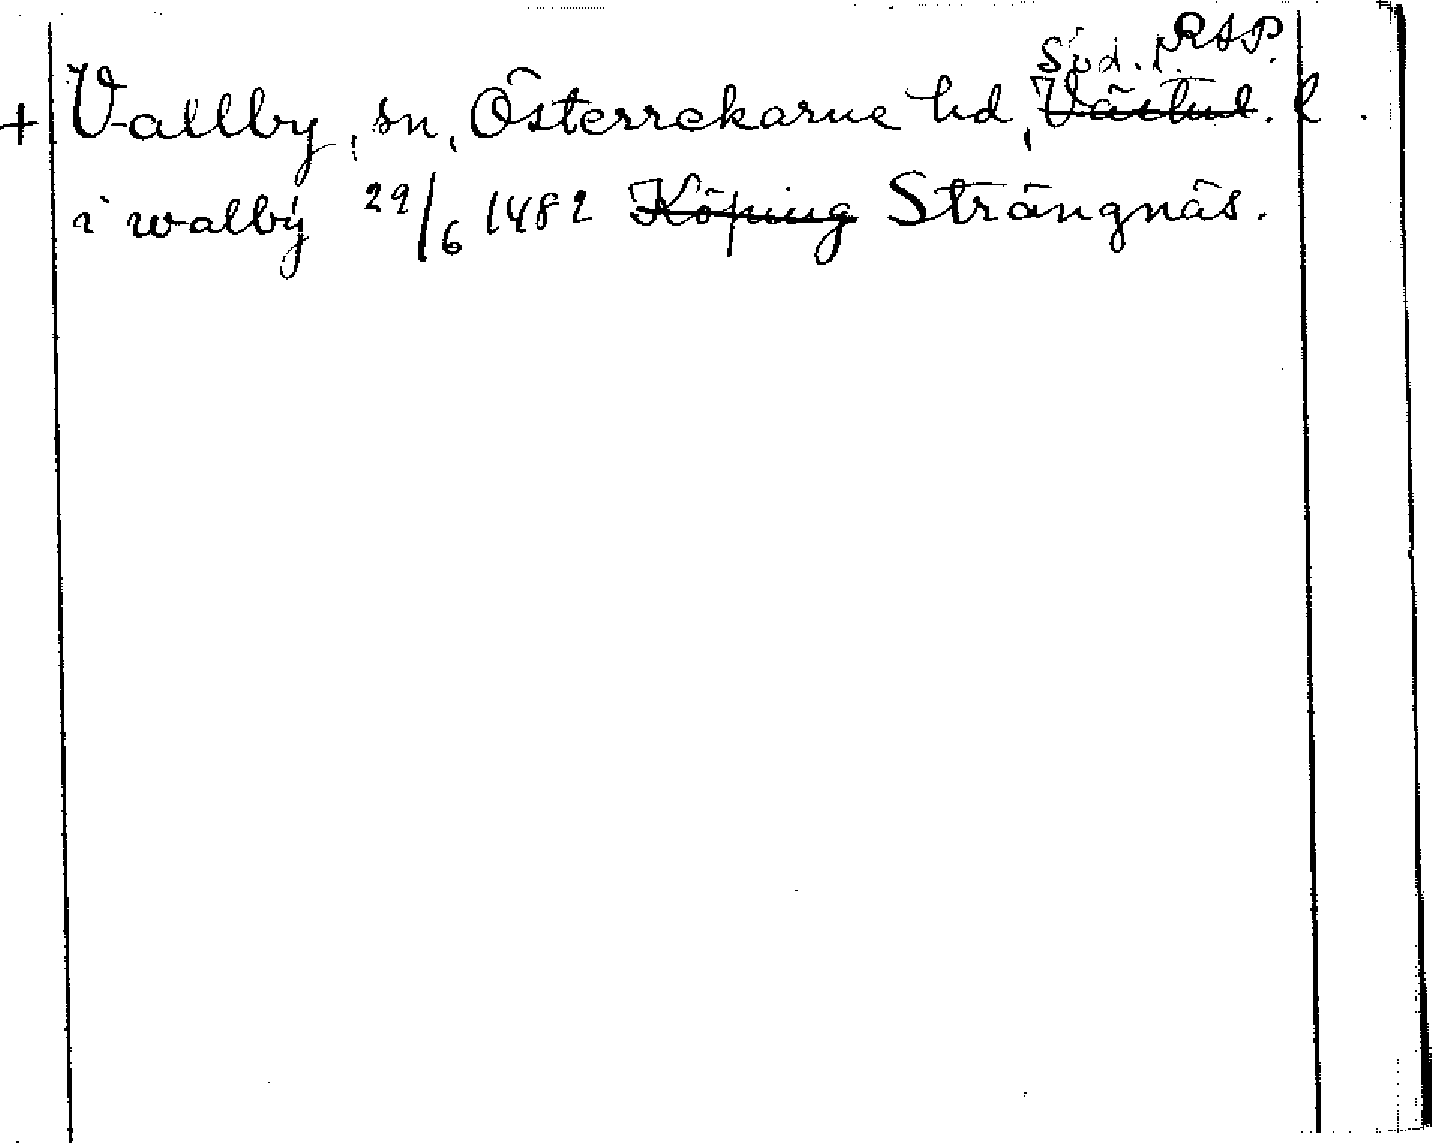 RAP.
Söd. l.
+ Vallby, sn, Österrekarne hd, Västml. l.
i walbÿ 29/6 1482 Köping Strängnäs.